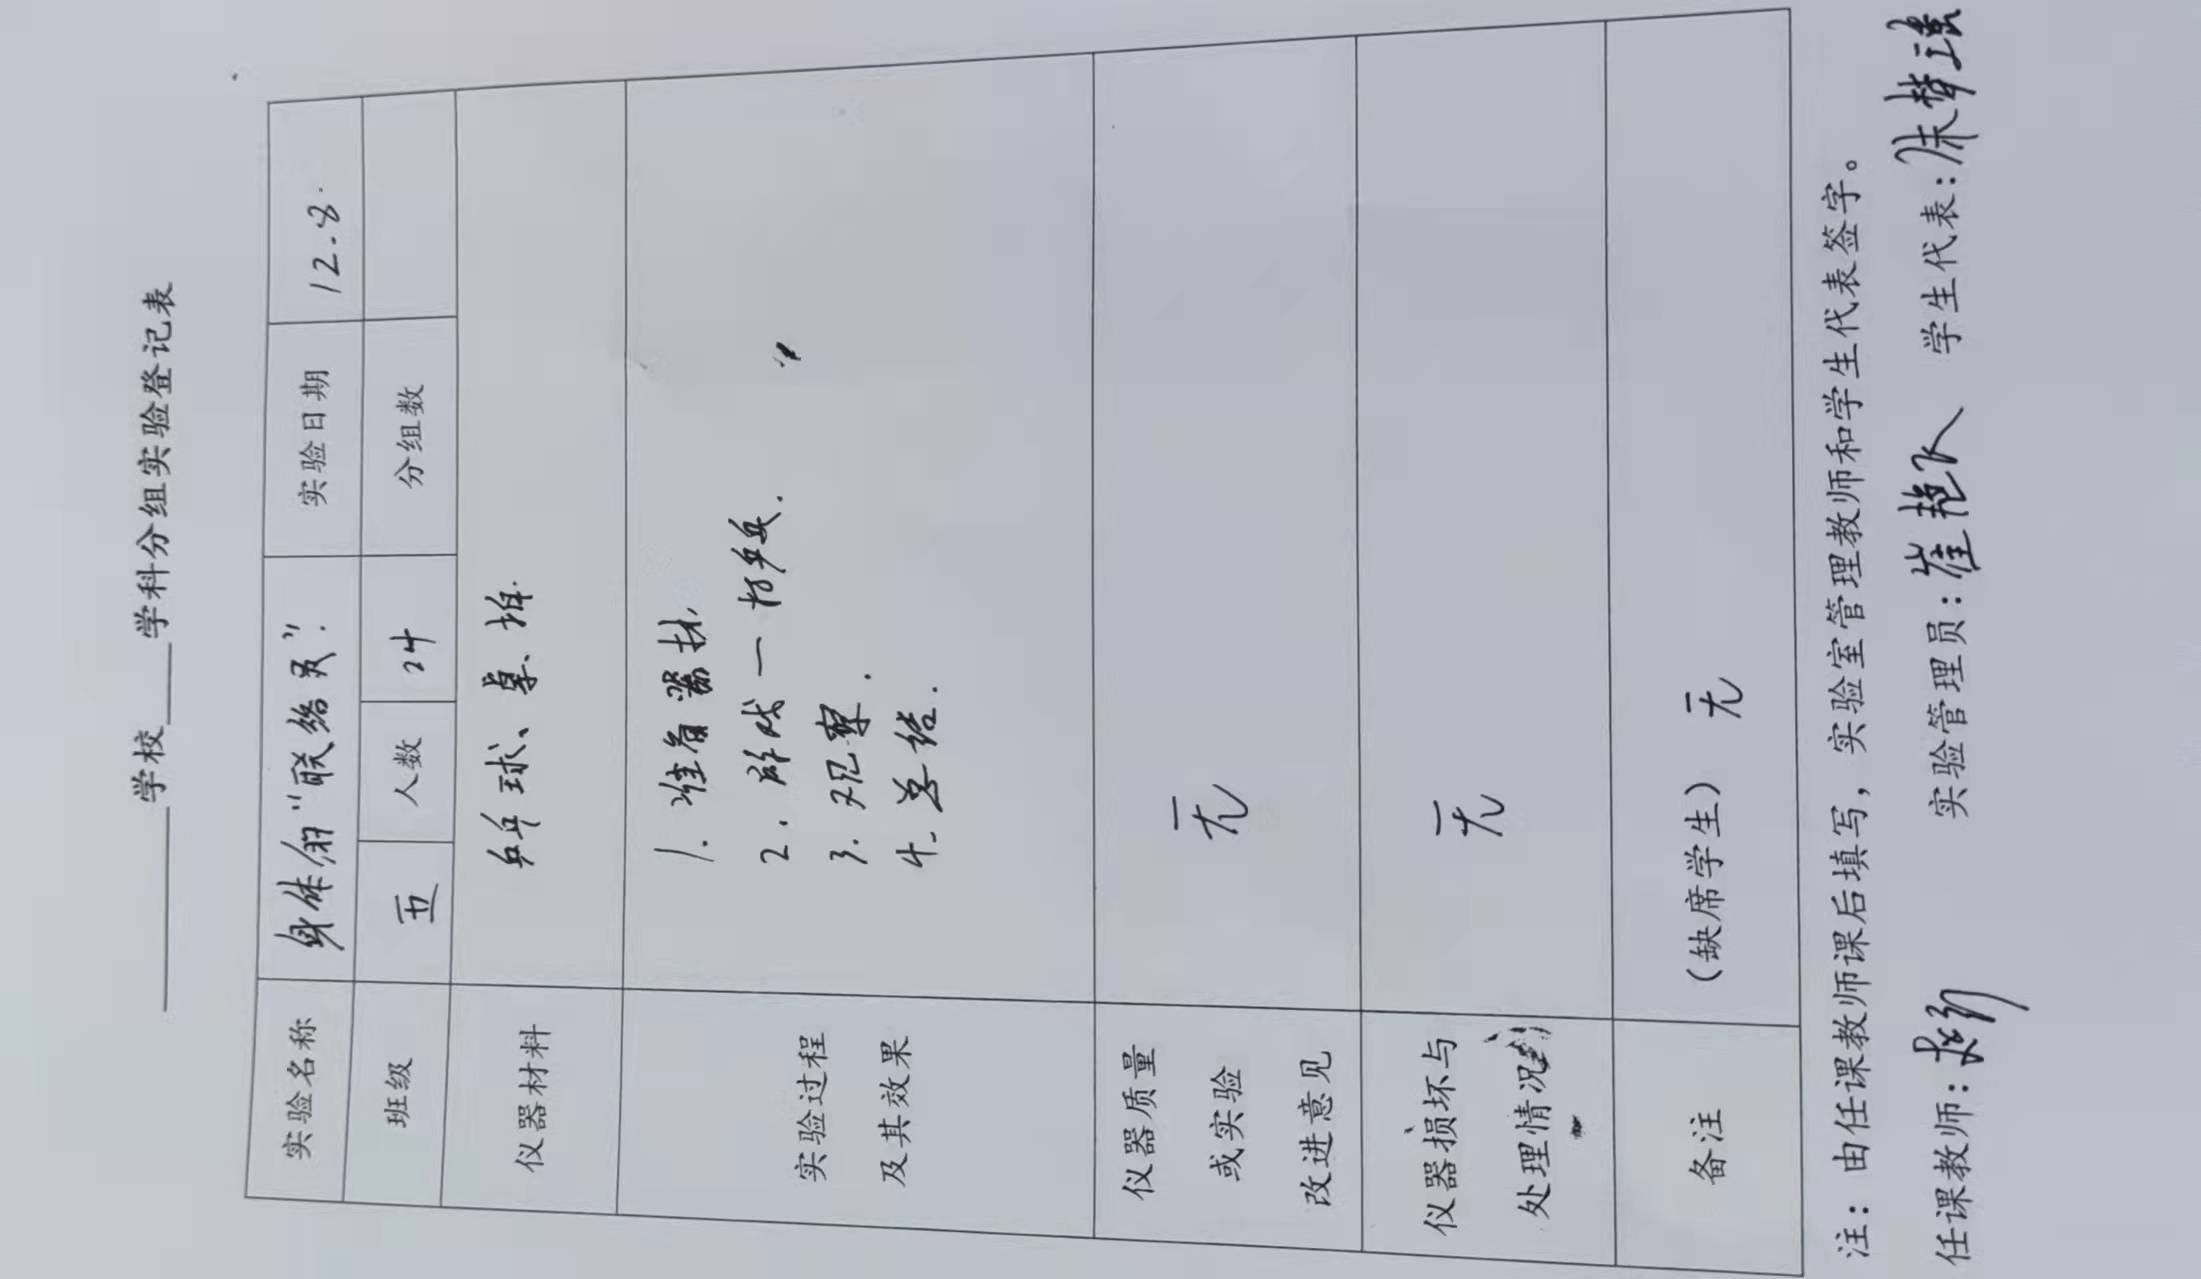 学校 学科分组实验登记表
实验名称 身体的“联络员”. 实验日期 12.8.
班级 五 人数 24 分组数
仪器材料 乒乓球、桌、拍.
实验过程
及其效果
1. 准备器材,
2. 游戏一打乒乓.
3. 观察.
4. 总结.
仪器质量
或实验
改进意见
无
仪器损坏与
处理情况
无
备注 (缺席学生) 无
注：由任课教师课后填写，实验室管理教师和学生代表签字。
任课教师： 实验管理员：崔艳 学生代表：朱梦